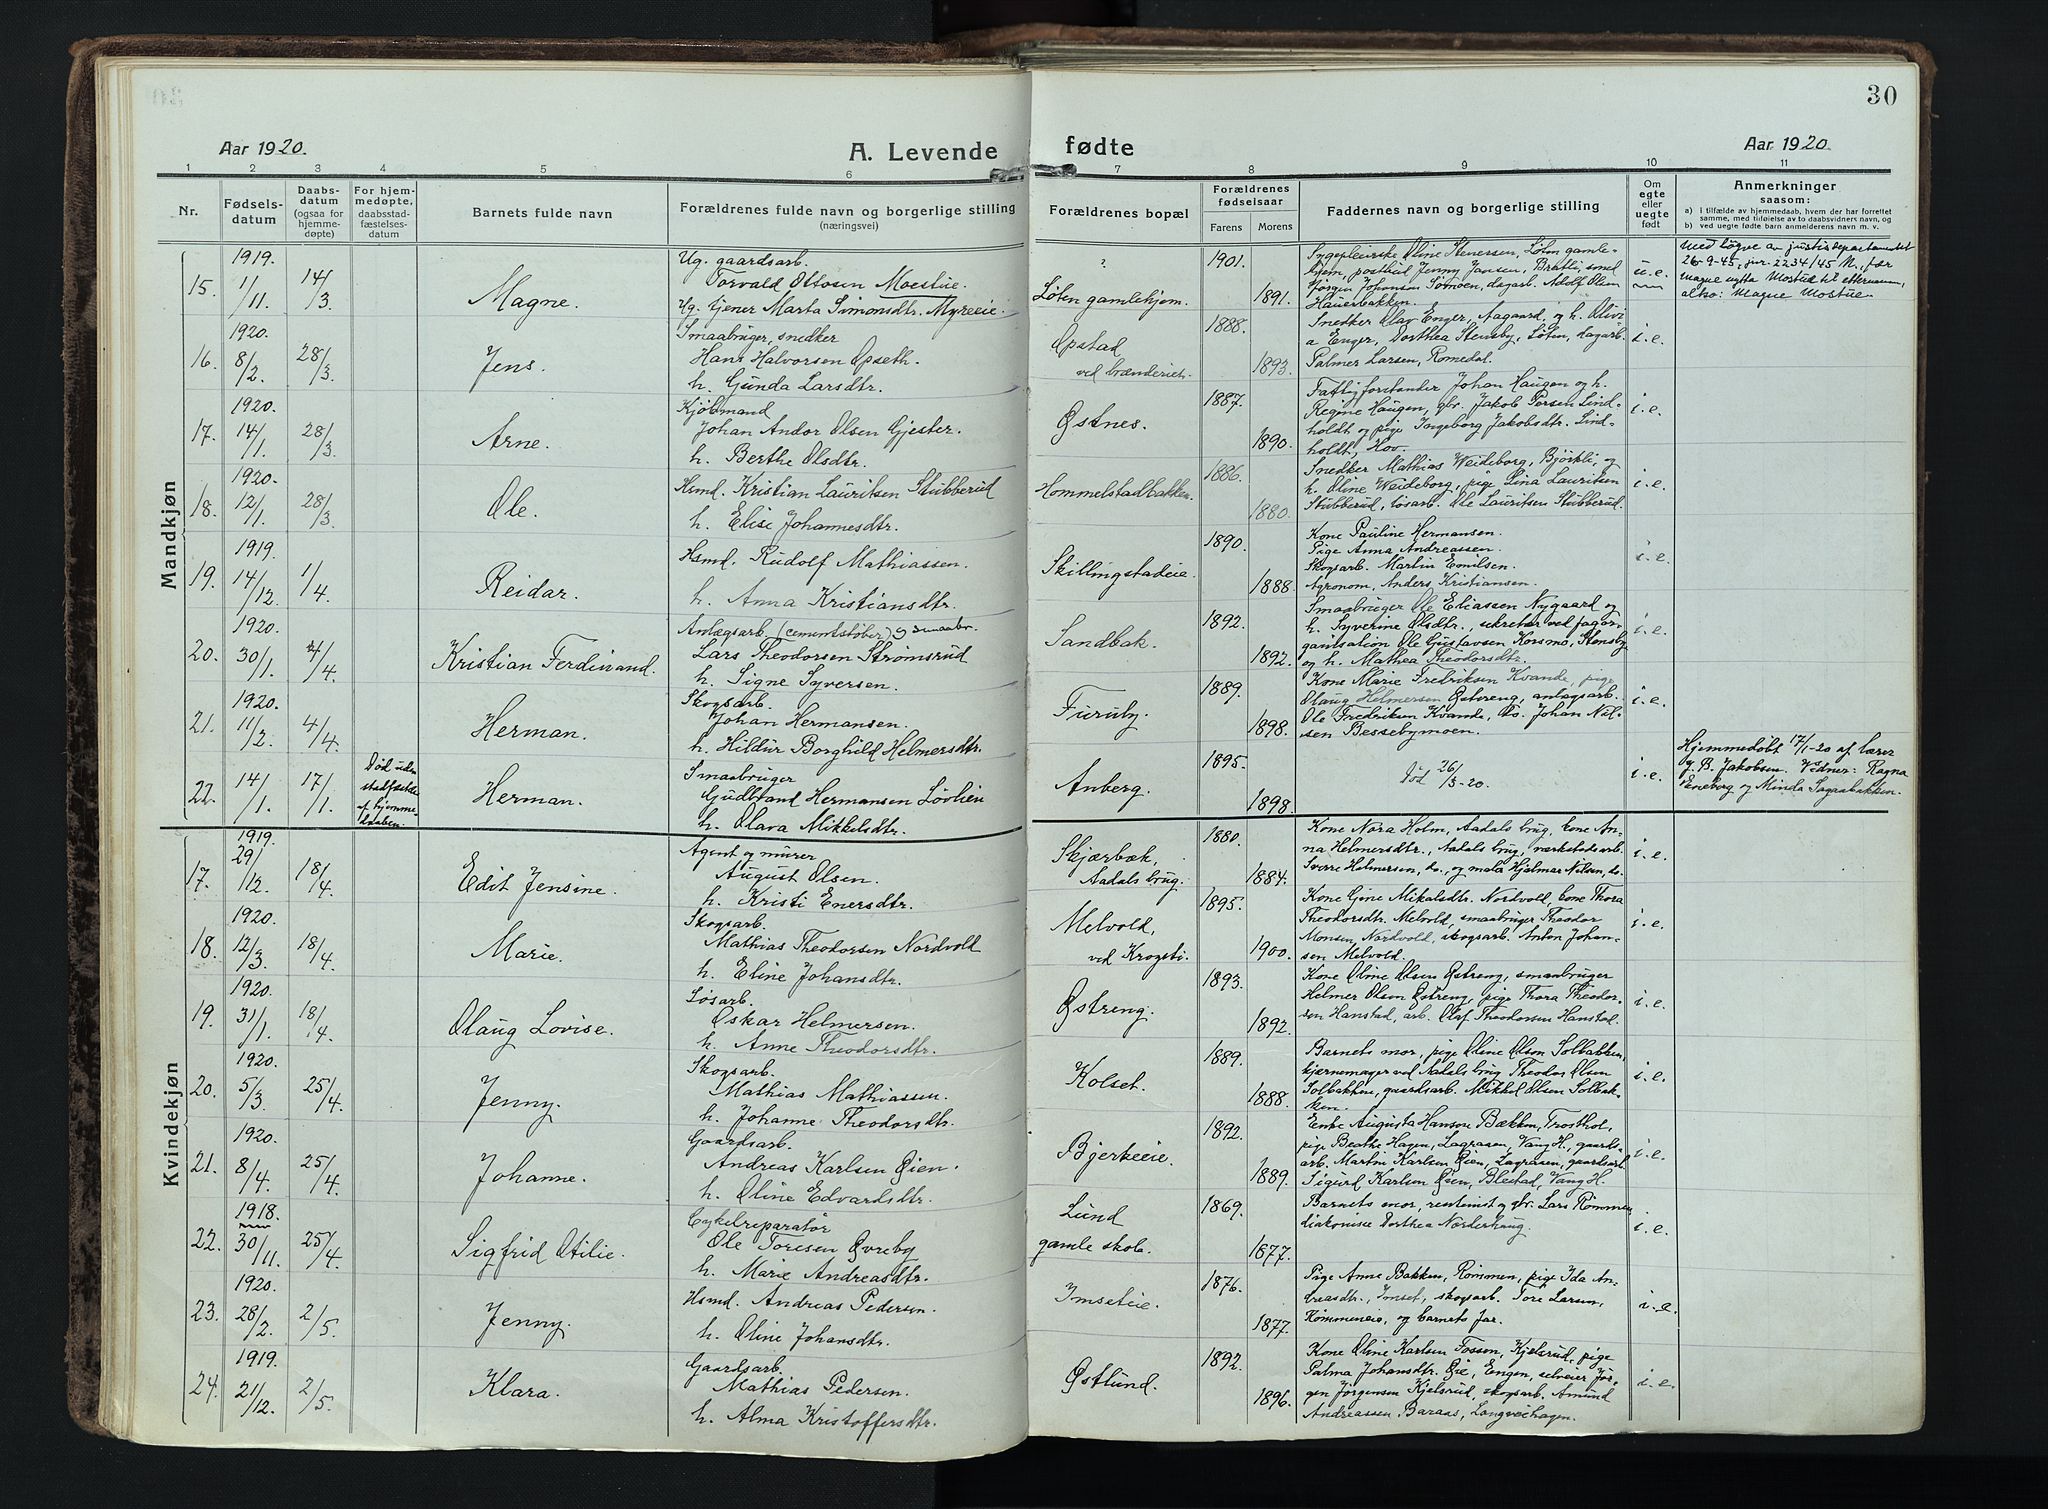 30
Aar 1920.
A. Levende fødte
Aar 1920
1 2 3 4 5 6 7 8 9 10 11
Nr.
Fødsels-
datum
Daabs-
datum
(ogsaa for
hjemme-
døpte)
For hjem-
medøpte,
daabsstad-
fæstelses-
datum
Barnets fulde navn
Forældrenes fulde navn og borgerlige stilling
(næringsvei)
Forældrenes bopæl
Forældrenes
fødselsaar
Farens Morens
Faddernes navn og borgerlige stilling
Om
egte
eller
uegte
født
Anmerkninger
saasom:
a) I tilfælde av hjemmedaab, hvem der har forrettet
samme, med tilføielse av to daabsvidners navn, og
b) ved uegte født barn anmelderens navn m. v.
Mandkjøn
15. 1919. 1/11 14/3 Magne.
Ug. gaardsarb.
Torvald Ottosen Moestue.
Ug. tjener Marta Simonsdtr. Myreeie.
?
Løten gamlehjem.
1901. 1891.
Sygepleierske Oline Stenersen, Løten gamle-
hjem, postbud Jenny Jansen, Brotli, smed
Jørgen Johansen Sømoen, dagarb. Adolf Olsen
Hauerbakken.
u.e.
Med løyve av justisdepartementet
26-9-45, jnr. 2234/45 M., fær
Magne nytta Mostue til etternamn,
altso: Magne Mostue.
16. 1920. 8/2. 28/3 Jens.
Smaabruger, snedker
Hans Halvorsen Opseth.
h. Gunda Larsdtr.
Opstad
ved brænderiet.
1888. 1893.
Snedker Olav Enger, Aagaard, og h. Olivi-
a Enger, Dorthea Stensby, Løten, dagarb.
Palmer Larsen, Romedal.
i.e.
17. 1920. 14/1. 28/3 Arne.
Kjøbmand
Johan Andor Olsen Gjester.
h. Berthe Olsdtr.
Østnes.
1887. 1890.
Fattigforstander Johan Haugen og h.
Regine Haugen, gbr. Jakob Persen Lind-
holdt og pige Ingeborg Jakobsdtr. Lind-
holdt, Hov.
i.e.
18. 1920. 12/1. 28/3. Ole.
Hsmd. Kristian Lauritsen Stubberud
h. Elise Johannesdtr.
Hommelstadbakken.
1886. 1880.
Snedker Mathias Weideborg, Bjørkli, og
h. Oline Weideborg, pige Lina Lauritsen
Stubberud, løsarb. Ole Lauritsen Stubberud.
i.e.
19. 1919. 14/12. 1/4. Reidar.
Hsmd. Rudolf Mathiassen.
h. Anna Kristiansdtr.
Skillingstadeie.
1890. 1888.
Kone Pauline Hermansen.
Pige Anna Andreassen.
Skogsarb. Martin Emilsen.
Agronom, Anders Kristiansen.
i.e.
20. 1920. 30/1. 4/4. Kristian Ferdinand.
Anlægsarb. (cementstøber) og smaabr.
Lars Theodorsen Strømsrud
h. Signe Syversen.
Sandbak.
1892. 1892.
Smaabruger Ole Eliassen Nygaard og
h. Syverine Olsdtr., sekretær ved fagor-
ganisation Ole Gustavsen Korsmo, Stensby
og h. Mathea Theodorsdtr.
i.e.
21. 1920. 11/2. 4/4. Herman.
Skogsarb.
Johan Hermansen.
h. Hildur Borghild Helmersdtr.
Furuby.
1889. 1898.
Kone Marie Fredriksen Kvande, pige
Olaug Helmersen Østreng, anlægsarb.
Ole Fredriksen Kvande, do. Johan Nil-
sen Bessebymoen.
i.e.
22. 14/1. 17/1. Død uden
stadfæstelse
af hjemme-
daaben.
Herman.
Smaabruger
Gudbrand Hermansen Løvlien
h. Olava Mikkelsdtr.
Anberg.
1895. 1898.
Død 26/3-20.
i.e.
Hjemmedøbt 17/1-20 af lærer
J. B. Jakobsen. Vidner: Ragna
Eneborg og Minda Sagaabakken.
Kvindekjøn
17. 1919. 29/12. 18/4. Edit Jensine.
Agent og murer
August Olsen.
h. Kristi Enersdtr.
Skjærbæk,
Aadals brug.
1880. 1884.
Kone Nora Holm, Aadals brug, kone An-
na Helmersdtr., Aadals brug, verkstedsarb.
Sverre Helmersen, do., og maler Hjalmar Nilsen, do.
i.e.
18. 1920. 12/3. 18/4. Marie.
Skogsarb.
Mathias Theodorsen Nordvold
h. Eline Johansdtr.
Melvold,
ved Krogsti.
1895. 1900.
Kone Gine Mikalsdtr. Nordvold, kone Thora
Theodorsdtr. Melvold, smaabruger Theodor
Monsen, Nordvold, skogsarb. Anton Johan-
sen Melvold.
i.e.
19. 1920. 31/1. 18/4. Olaug Lovise.
Løsarb.
Oskar Helmersen.
h. Anne Theodorsdtr.
Østreng.
1893. 1892.
Kone Oline Olsen Østreng, smaabruger
Helmer Olsen Østreng, pige Thora Theodor-
sen Hanstad, arb. Olaf Theodorsen Hanstad.
i.e.
20. 1920. 5/3. 25/4. Jenny.
Skogsarb.
Mathias Mathiassen.
h. Johanne Theodorsdtr.
Kolset.
1889. 1888.
Barnets mor, pige Oline Olsen Solbakken,
kjærnemager ved Aadals brug Theodor Olsen
Solbakken, gaardsarb. Mikkel Olsen Solbak-
ken.
i.e.
21. 1920. 8/4. 25/4. Johanne.
Gaardsarb.
Andreas Karlsen Øien.
h. Oline Edvardsdtr.
Bjerkeeie.
1892. 1889.
Enke Augusta Hansen Bækken, Trosthol,
pige Beathe Hagen, Lagrasen, Vang H., gaards-
arb. Martin Karlsen Øien, Lagrasen, gaardsarb.
Sigurd Karlsen Øien, Blestad, Vang H.
i.e.
22. 1918. 30/11. 25/4. Sigfrid Otilie.
Cykelreparatør
Ole Toresen Øvreby
h. Marie Andreasdtr.
Lund
gamle skole.
1869. 1877.
Barnets mor, rentenist og gbr. Lars Rømmen,
diakonisse Dorthea Norderhaug.
i.e.
23. 1920. 28/2. 2/5. Jenny.
Hsmd. Andreas Pedersen.
h. Oline Johansdtr.
Imseteie.
1876. 1877.
Pige Anne Bakken, Rømmen, pige Ida An-
dreasdtr., Imset, skogsarb. Tore Larsen,
Rømmeneie, og barnets far.
i.e.
24. 1919. 21/12. 2/5. Klara.
Gaardsarb.
Mathias Pedersen.
h. Alma Kristoffersdtr.
Østlund.
1892. 1896.
Kone Oline Karlsen Fossen, Kjelsrud, pige
Palma Johansdtr. Øie, Engen, selveier Jør-
gen Jørgensen Kjelsrud, skogsarb. Amund
Andreassen, Baraas, Langveihagen.
i.e.